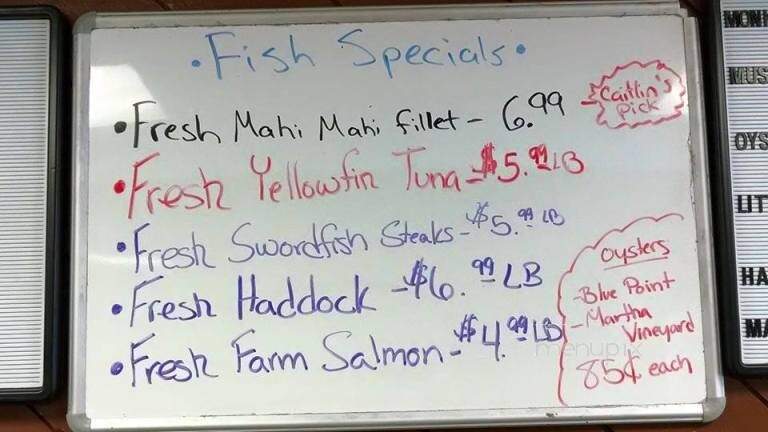 • Fish Specials •
• Fresh Mahi Mahi fillet - 6.99
Caitlin's Pick
• Fresh Yellowfin Tuna - $5.99 LB
• Fresh Swordfish Steaks - $5.99 LB
• Fresh Haddock - $6.99 LB
• Fresh Farm Salmon - $4.99 LB
oysters
- Blue Point
- Martha
Vineyard
85¢ each
menupix
MON
MUS
OYS
LIT
HA
MA